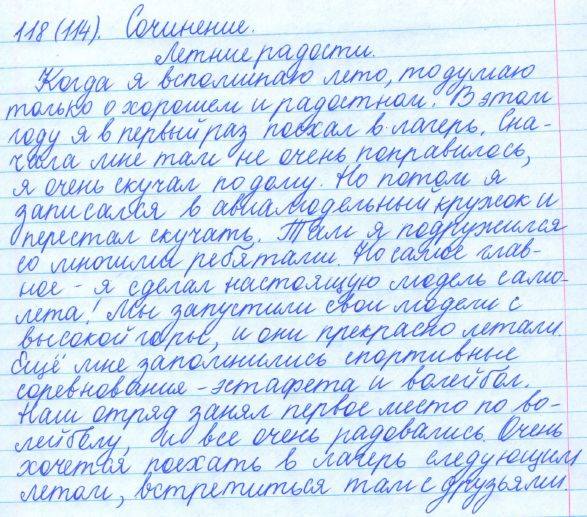 118(114). Сочинение.
Летние радости.
Когда я вспоминаю лето, то думаю
только о хорошем и радостном. В этом
году я в первый раз поехал в лагерь. Сна-
чала мне там не очень понравилось,
я очень скучал по дому. Но потом я
записался в авиамодельный кружок и
перестал скучать. Там я подружился
со многими ребятами. Но самое глав-
ное - я сделал настоящую модель само-
лета! Мы запустили свои модели с
высокой горы, и они прекрасно летали.
Ещё мне запомнились спортивные
соревнования - эстафета и волейбол.
Наш отряд занял первое место по во-
лейболу, и все очень радовались. Очень
хочется поехать в лагерь следующим
летом, встретиться там с друзьями.